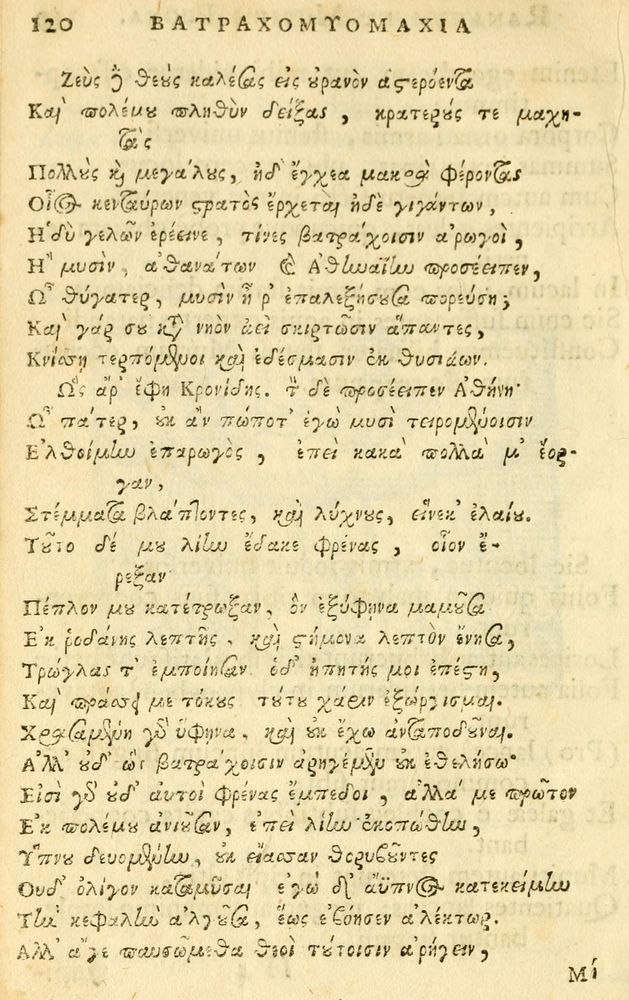 120 ΒΑΤΡΑΧΟΜΥΟΜΑΧΙΑ
Ζεὺς ἢ θεοὺς καλέσας εἰς οὐρανὸν ἀστερόεντα
Καὶ πολέμου πληθὺν δείξας, κρατερούς τε μαχη-
τὰς
Πολλοὺς καὶ μεγάλους, ἠδ' ἔγχεα μακρὰ φέροντας
Οἷος κενταύρων στρατὸς ἔρχεται ἠδὲ γιγάντων,
Ηδὺ γελῶν ἐρέεινε, τίνες βατράχοισιν ἀρωγοὶ,
Η μυσὶν, ἀθανάτων καὶ Αθηναίην προσέειπεν,
Ω θύγατερ, μυσὶν ἦ ῥ' ἐπαλεξήσουσα πορεύση;
Καὶ γάρ σου κατὰ νηὸν ἀεὶ σκιρτῶσιν ἅπαντες,
Κνίσση τερπόμενοι καὶ ἐδέσμασιν ἐκ θυσιάων.
Ως ἄρ' ἔφη Κρονίδης. τὸν δὲ προσέειπεν Αθήνη·
Ω πάτερ, οὐκ ἂν πώποτ' ἐγὼ μυσὶ τειρομένοισιν
Ελθοίμην ἐπαρωγὸς, ἐπεὶ κακὰ πολλὰ μ' ἔορ-
γαν,
Στέμματα βλάπτοντες, καὶ λύχνους, εἵνεκ' ἐλαίου.
Τοῦτο δέ μου λίην ἔδακε φρένας, οἷον ἔ-
ρεξαν·
Πέπλον μου κατέτρωξαν, ὃν ἐξύφηνα καμοῦσα
Εκ ῥοδάνης λεπτῆς, καὶ στήμονα λεπτὸν ἔνησα,
Τρώγλας τ' ἐμποίησαν· ὁδ' ἠπητής μοι ἐπέστη,
Καὶ πράσσει με τόκους· τούτου χάριν ἐξώργισμαι.
Χρησαμένη γὰρ ὕφηνα, καὶ οὐκ ἔχω ἀνταποδοῦναι.
Αλλ' οὐδ' ὣς βατράχοισιν ἀρηγέμεν οὐκ ἐθελήσω·
Εἰσὶ γὰρ οὐδ' αὐτοὶ φρένας ἔμπεδοι, ἀλλά με πρῶτον
Εκ πολέμου ἀνιοῦσαν, ἐπεὶ λίην ἐκοπώθην,
Υπνου δευομένην, οὐκ εἴασαν θορυβοῦντες
Ουδ' ὀλίγον καταμῦσαι· ἐγὼ δὲ ἄϋπνος κατεκείμην
Τὴν κεφαλὴν ἀλγοῦσα, ἕως ἐβόησεν ἀλέκτωρ.
Αλλ' ἄγε παυσώμεθα θεοὶ τούτοισιν ἀρήγειν,
Μή